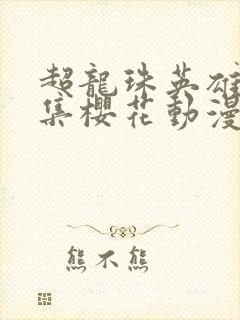 超龍珠英雄
集櫻花動漫
熊不熊